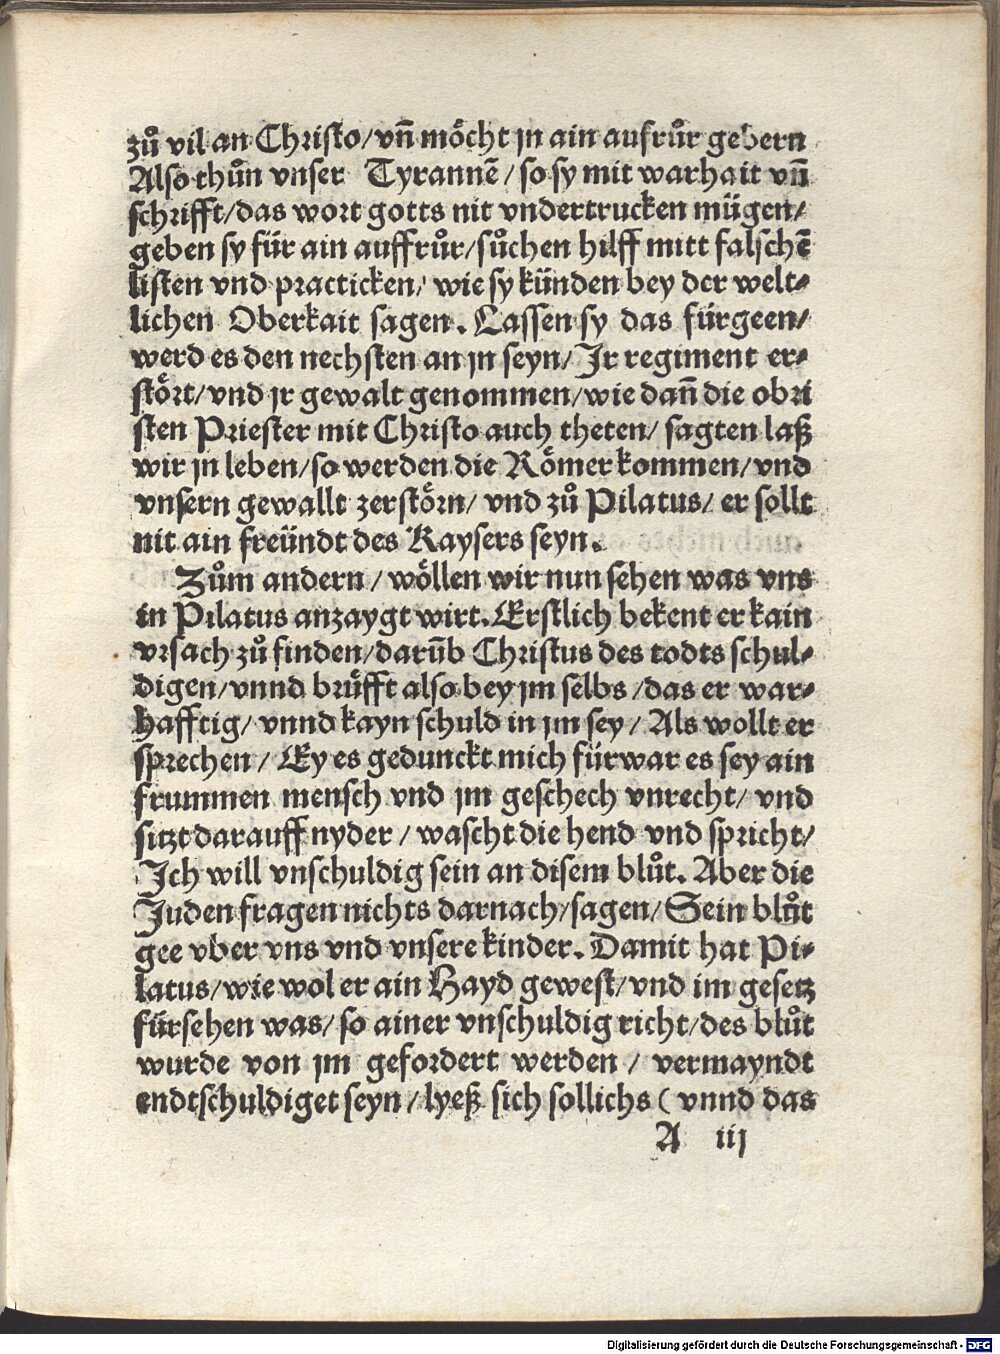 zů vil an Christo/vñ möcht jn ain aufrůr gebern
Also thůn vnser Tyrannē/so sy mit warhait vñ
schrifft/das wort gotts nit vndertrucken mügen/
geben sy für ain auffrůr/sůchen hilff mitt falschē
listen vnd practicken/wie sy künden bey der welt⸗
lichen Oberkait sagen. Lassen sy das fürgeen/
werd es den nechsten an jn seyn/Jr regiment er⸗
stört/vnd jr gewalt genommen/wie dañ die obri
sten Priester mit Christo auch theten/sagten laß
wir jn leben/so werden die Römer kommen/vnd
vnsern gewallt zerstörn/vnd zů Pilatus/er sollt
nit ain freündt des Kaysers seyn.
Zům andern/wöllen wir nun sehen was vns
in Pilatus anzaygt wirt. Erstlich bekent er kain
vrsach zů finden/darūb Christus des todts schul⸗
digen/vnnd brüfft also bey jm selbs/das er war⸗
hafftig/vnnd kayn schuld in jm sey/Als wollt er
sprechen/Ey es gedunckt mich fürwar es sey ain
frummen mensch vnd jm geschech vnrecht/vnd
sitzt darauff nyder/wascht die hend vnd spricht/
Jch will vnschuldig sein an disem blůt. Aber die
Juden fragen nichts darnach/sagen/Sein blůt
gee vber vns vnd vnsere kinder. Damit hat Pi⸗
latus/wie wol er ain Hayd gewest/vnd im gesetz
fürsehen was/so ainer vnschuldig richt/des blůt
wurde von jm gefordert werden/vermayndt
endtschuldiget seyn/lyeß sich sollichs (vnnd das
A iij
Digitalisierung gefördert durch die Deutsche Forschungsgemeinschaft - DFG